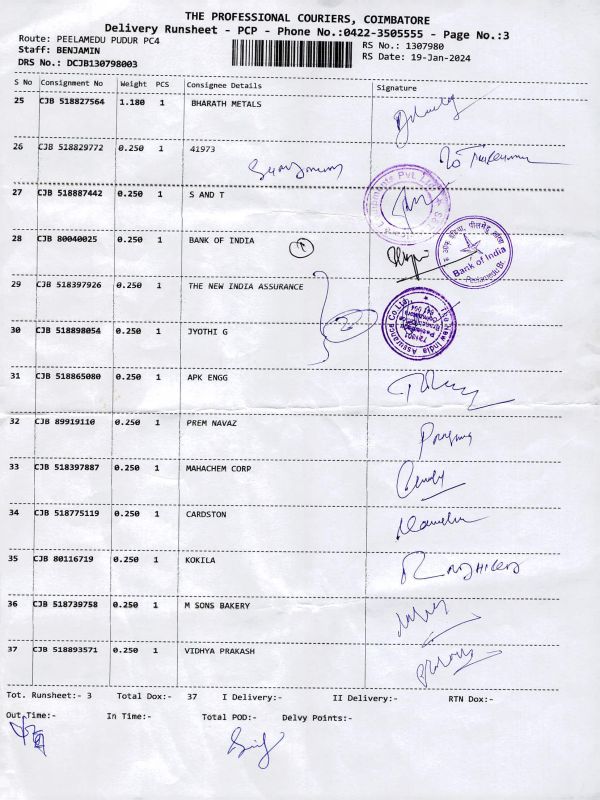 THE PROFESSIONAL COURIERS, COIMBATORE
Delivery Runsheet - PCP - Phone No.:0422-3505555 - Page No.:3
Route: PEELAMEDU PUDUR PC4 RS No.: 1307980
Staff: BENJAMIN RS Date: 19-Jan-2024
DRS No.: DCJB130798003
S No Consignment No Weight PCS Consignee Details Signature
25 CJB 518827564 1.180 1 BHARATH METALS
26 CJB 518829772 0.250 1 41973
27 CJB 518887442 0.250 1 S AND T
28 CJB 80040025 0.250 1 BANK OF INDIA
Bank of India
29 CJB 518397926 0.250 1 THE NEW INDIA ASSURANCE
The New India Assurance Co.Ltd
30 CJB 518898054 0.250 1 JYOTHI G
31 CJB 518865080 0.250 1 APK ENGG
32 CJB 89919110 0.250 1 PREM NAVAZ
33 CJB 518397887 0.250 1 MAHACHEM CORP
34 CJB 518775119 0.250 1 CARDSTON
35 CJB 80116719 0.250 1 KOKILA
36 CJB 518739758 0.250 1 M SONS BAKERY
37 CJB 518893571 0.250 1 VIDHYA PRAKASH
Tot. Runsheet:- 3 Total Dox:- 37 I Delivery:- II Delivery:- RTN Dox:-
Out Time:- In Time:- Total POD:- Delvy Points:-